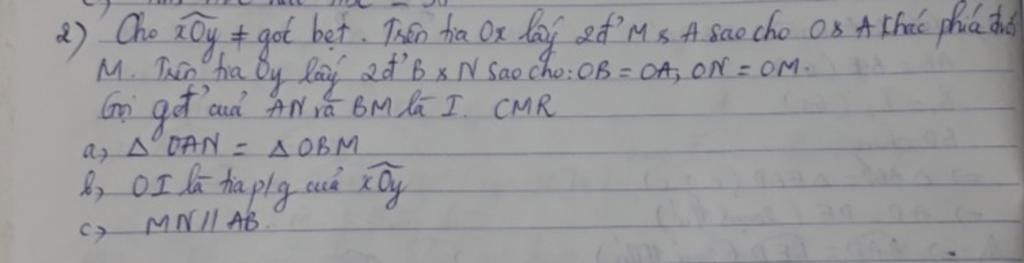 2) Cho xOy ≠ góc bẹt. Trên tia Ox lấy 2đ' M & A sao cho O & A khác phía đối
M. Trên tia Oy lấy 2đ' B & N sao cho: OB = OA, ON = OM.
Gọi gđ' của AN và BM là I. CMR
a, Δ OAN = Δ OBM
b, OI là tia p/g của xOy
c, MN // AB.